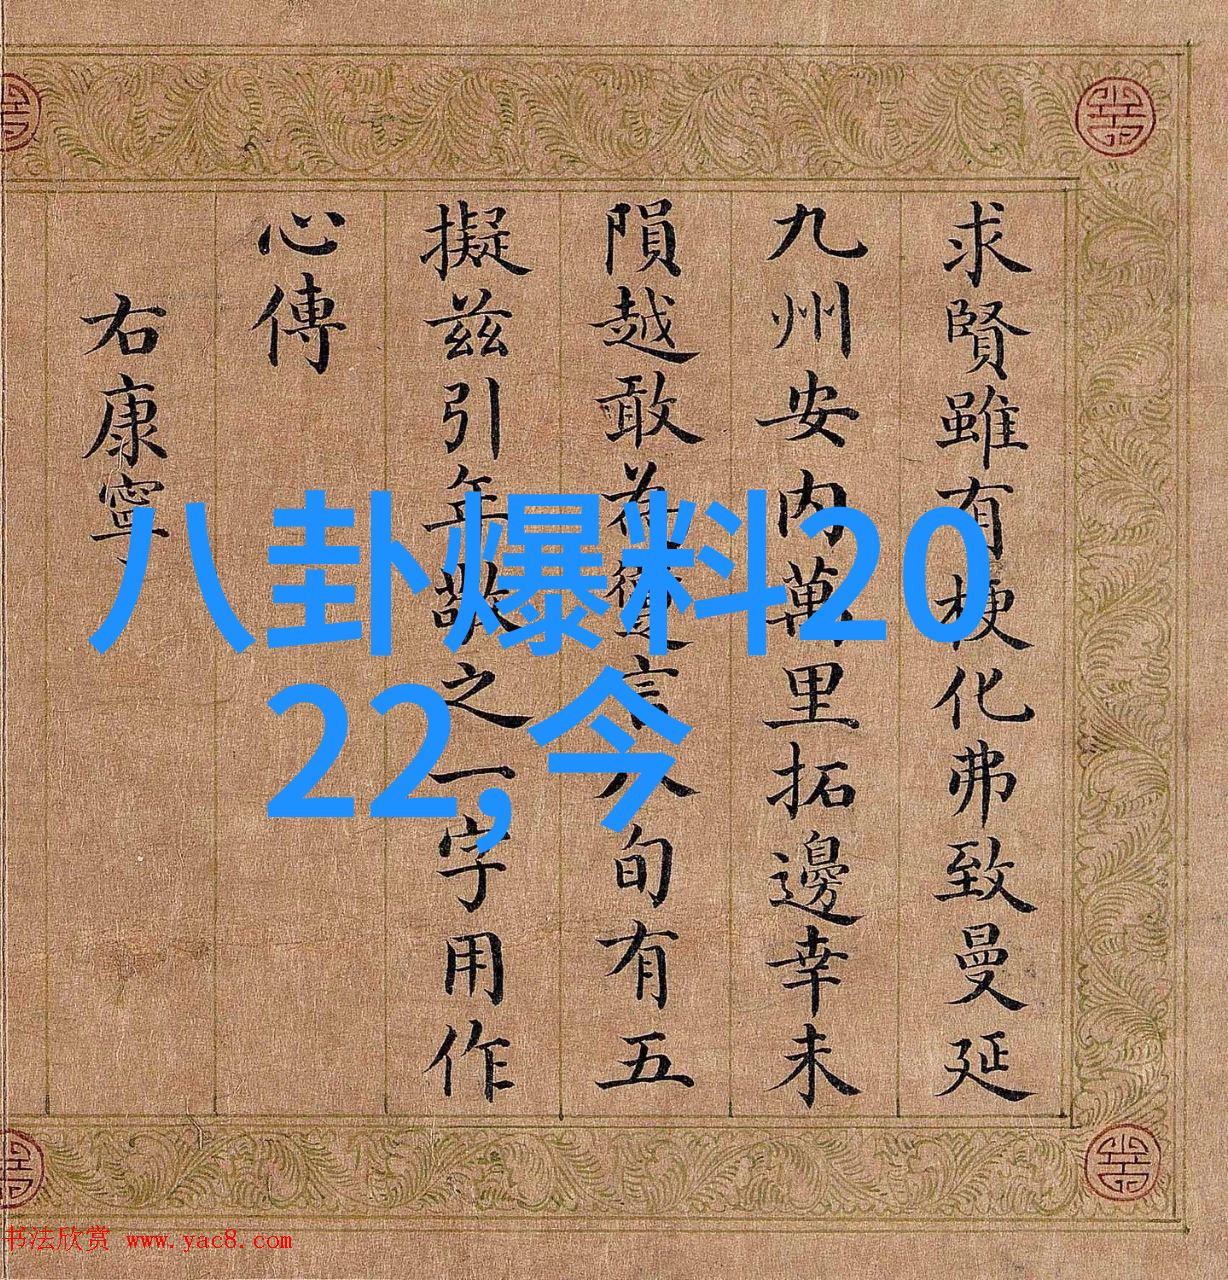 求賢雖有梗化弗致曼延
九州安内萬里拓邊幸未
隕越敢為言八旬有五
擬兹引年敬之一字用作
心傳
右康寧
八卦爆料20
22,今
书法欣赏 www.yac8.com